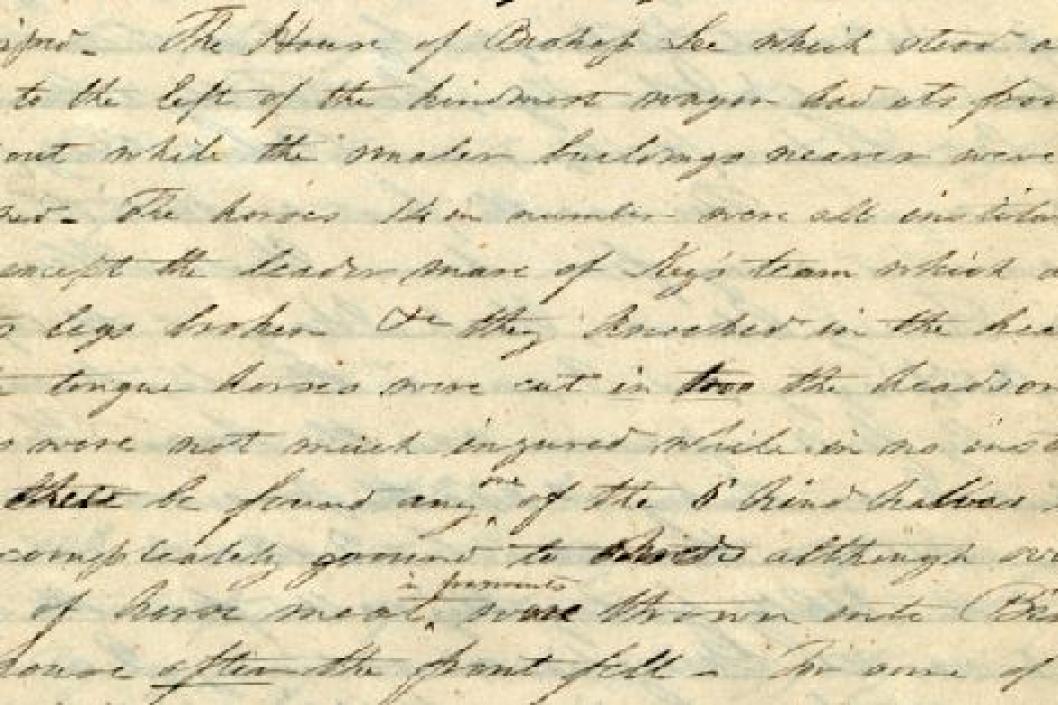 The House of Bishop Lee which stood a
to the left of the hindmost wagon had its fron
out while the smaler buildings nearer were
The horses 14 in number were all
except the leader mare of Keys team which
legs broken &c they knocked in the
tongue horses were cut in two the heads
were not much injured while in no
be found any one of the 5 hind halves
compleately ground to although
of horse meat in fragments were thrown into
house after the front fell - In one of